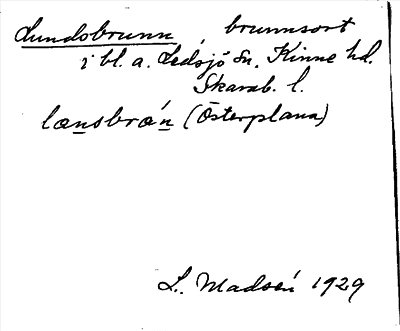 Lundsbrunn, brunnsort
i bl. a. Ledsjö sn. Kinne hd.
Skarab. l.
lænsbrán (Österplana)
L. Madsén 1929